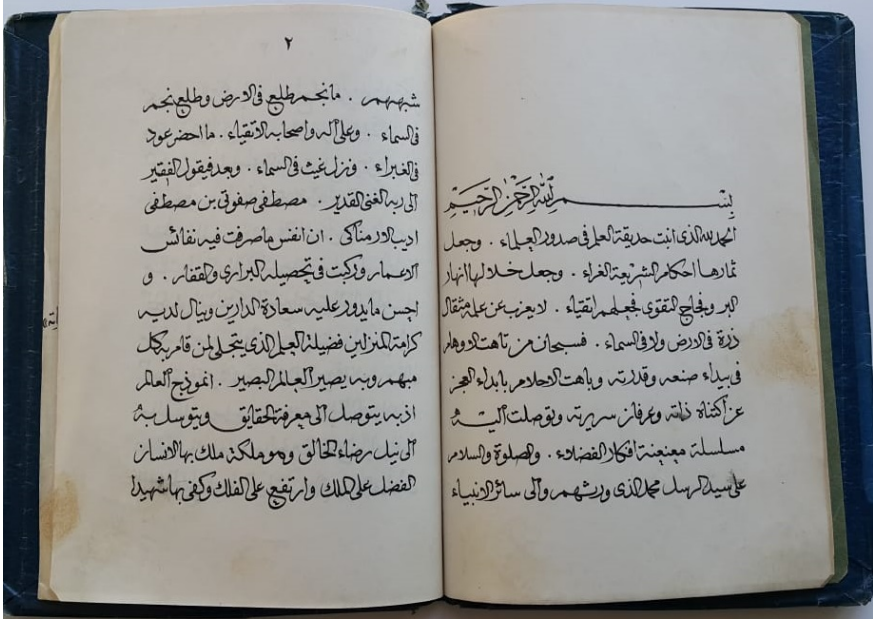 بسم الله الرحمن الرحيم
الحمد لله الذى انبت حديقة العلم فى صدور العلماء . وجعل
ثمارها احكام الشريعة الغراء . وجعل خلالها انهار
البر وفجاج التقوى فجعلهم اتقياء . لا يعزب عن علمه مثقال
ذرة فى الارض ولا فى السماء . فسبحان من تاهت الاوهام
فى بيداء صنعه وقدرته وباهت الاحلام بابداء العجز
عن اكتناه ذاته وعرفان سريرته وتوصلت اليه
مسلسلة معنعنة افكار الفضلاء . والصلوة والسلام
على سيد الرسل محمد الذى ورثهم والى سائر الانبياء
٢
شبههم . ما نجم طلع فى الارض وطلع نجم
فى السماء . وعلى آله واصحابه الاتقياء . ما اخضر عود
فى الغبراء . ونزل غيث فى السماء . وبعد فيقول الفقير
الى ربه الغنى القدير . مصطفى صفوتى بن مصطفى
اديب الاورمناكى . ان انفس ما صرفت فيه نفائس
الاعمار وركبت فى تحصيله البرارى والقفار . و
احسن ما يدور عليه سعادة الدارين وينال لديه
كرامة المنزلين فضيلة العلم الذى يتجلى لمن قام به كل
مبهم وبه يصير العالم البصير . انموذج العالم
اذ به يتوصل الى معرفة الحقايق ويتوسل به
الى نيل رضاء الخالق وهو ملكة ملك بها الانسان
الفضل على الملك وارتفع على الفلك وكفى بها شهيدا